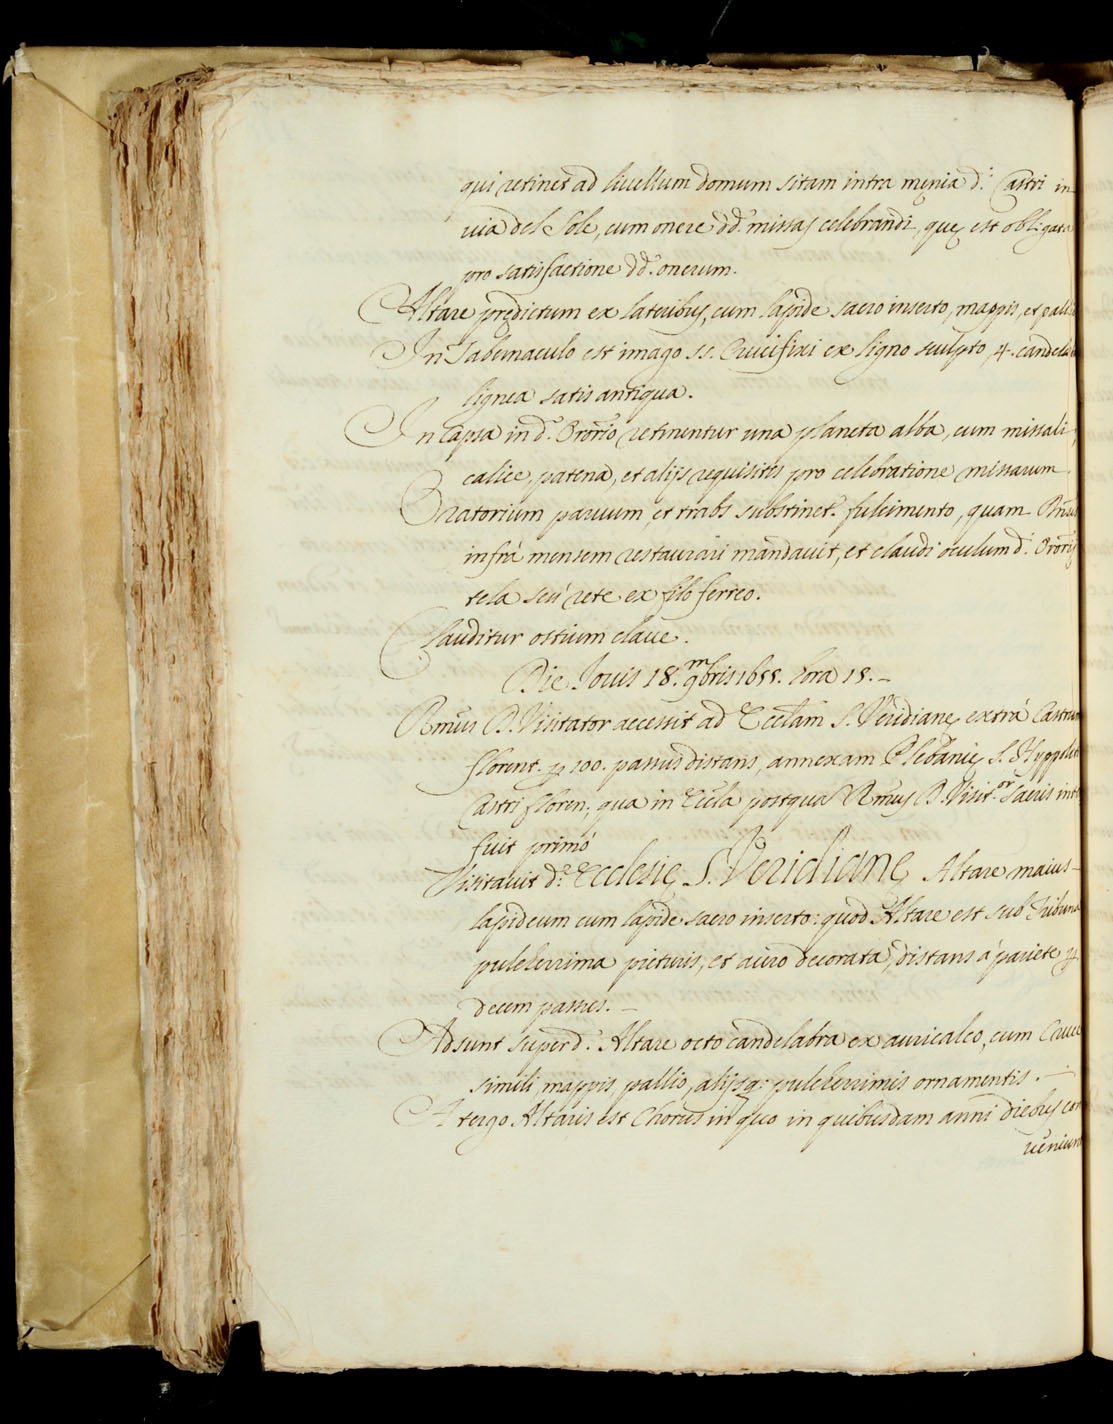 qui retinet ad livellum domum sitam intra menia d.ⁱ Castri in
via del Sole, cum onere dd. missas celebrandi, quę est obligata
pro satisfactione dd. onerum.
Altare prędictum ex lateribus, cum lapide sacro inserto, mappis, et
In Tabernaculo est imago SS. Crucifixi ex ligno sculpto, 4. candelabra
lignea satis antiqua.
In Capsa in d.º Orōrio retinentur una planeta alba, cum missali
calice, patena, et alijs requisitis pro celebratione missarum
Oratorium parvum et trabs substinet.r fulcimento, quam
infrà mensem restaurari mandavit, et claudi oculum d.ⁱ Orōrij
tela seù rete ex filo ferreo.
Clauditur ostium clave.
Die Jovis 18. m 9bris 1655. hora 18. –
Rm̄us D. Visitator accessit ad Eccl̄am S. Veridianę extrà Castrum
floren.t p 100. passus distans, annexam Plebanię S. Hyppoliti
Castri floren., qua in Eccl̄a postqua Rm̄us D. Visit.or sacris
fuit primò
Visitavit d.ę Ecclesię S. Veridianę Altare maius –
lapideum cum lapide sacro inserto: quod Altare est sub Tribuna
pulcherrima picturis, et auro decorata, distans à pariete p
decem passus. –
Adsunt super d.º Altare octo candelabra ex auricalco, cum Cruce
simili mappis, pallio, alijsq: pulcherrimis ornamentis. –
A tergo Altaris est Chorus in quo in quibusdam anni diebus con
veniunt